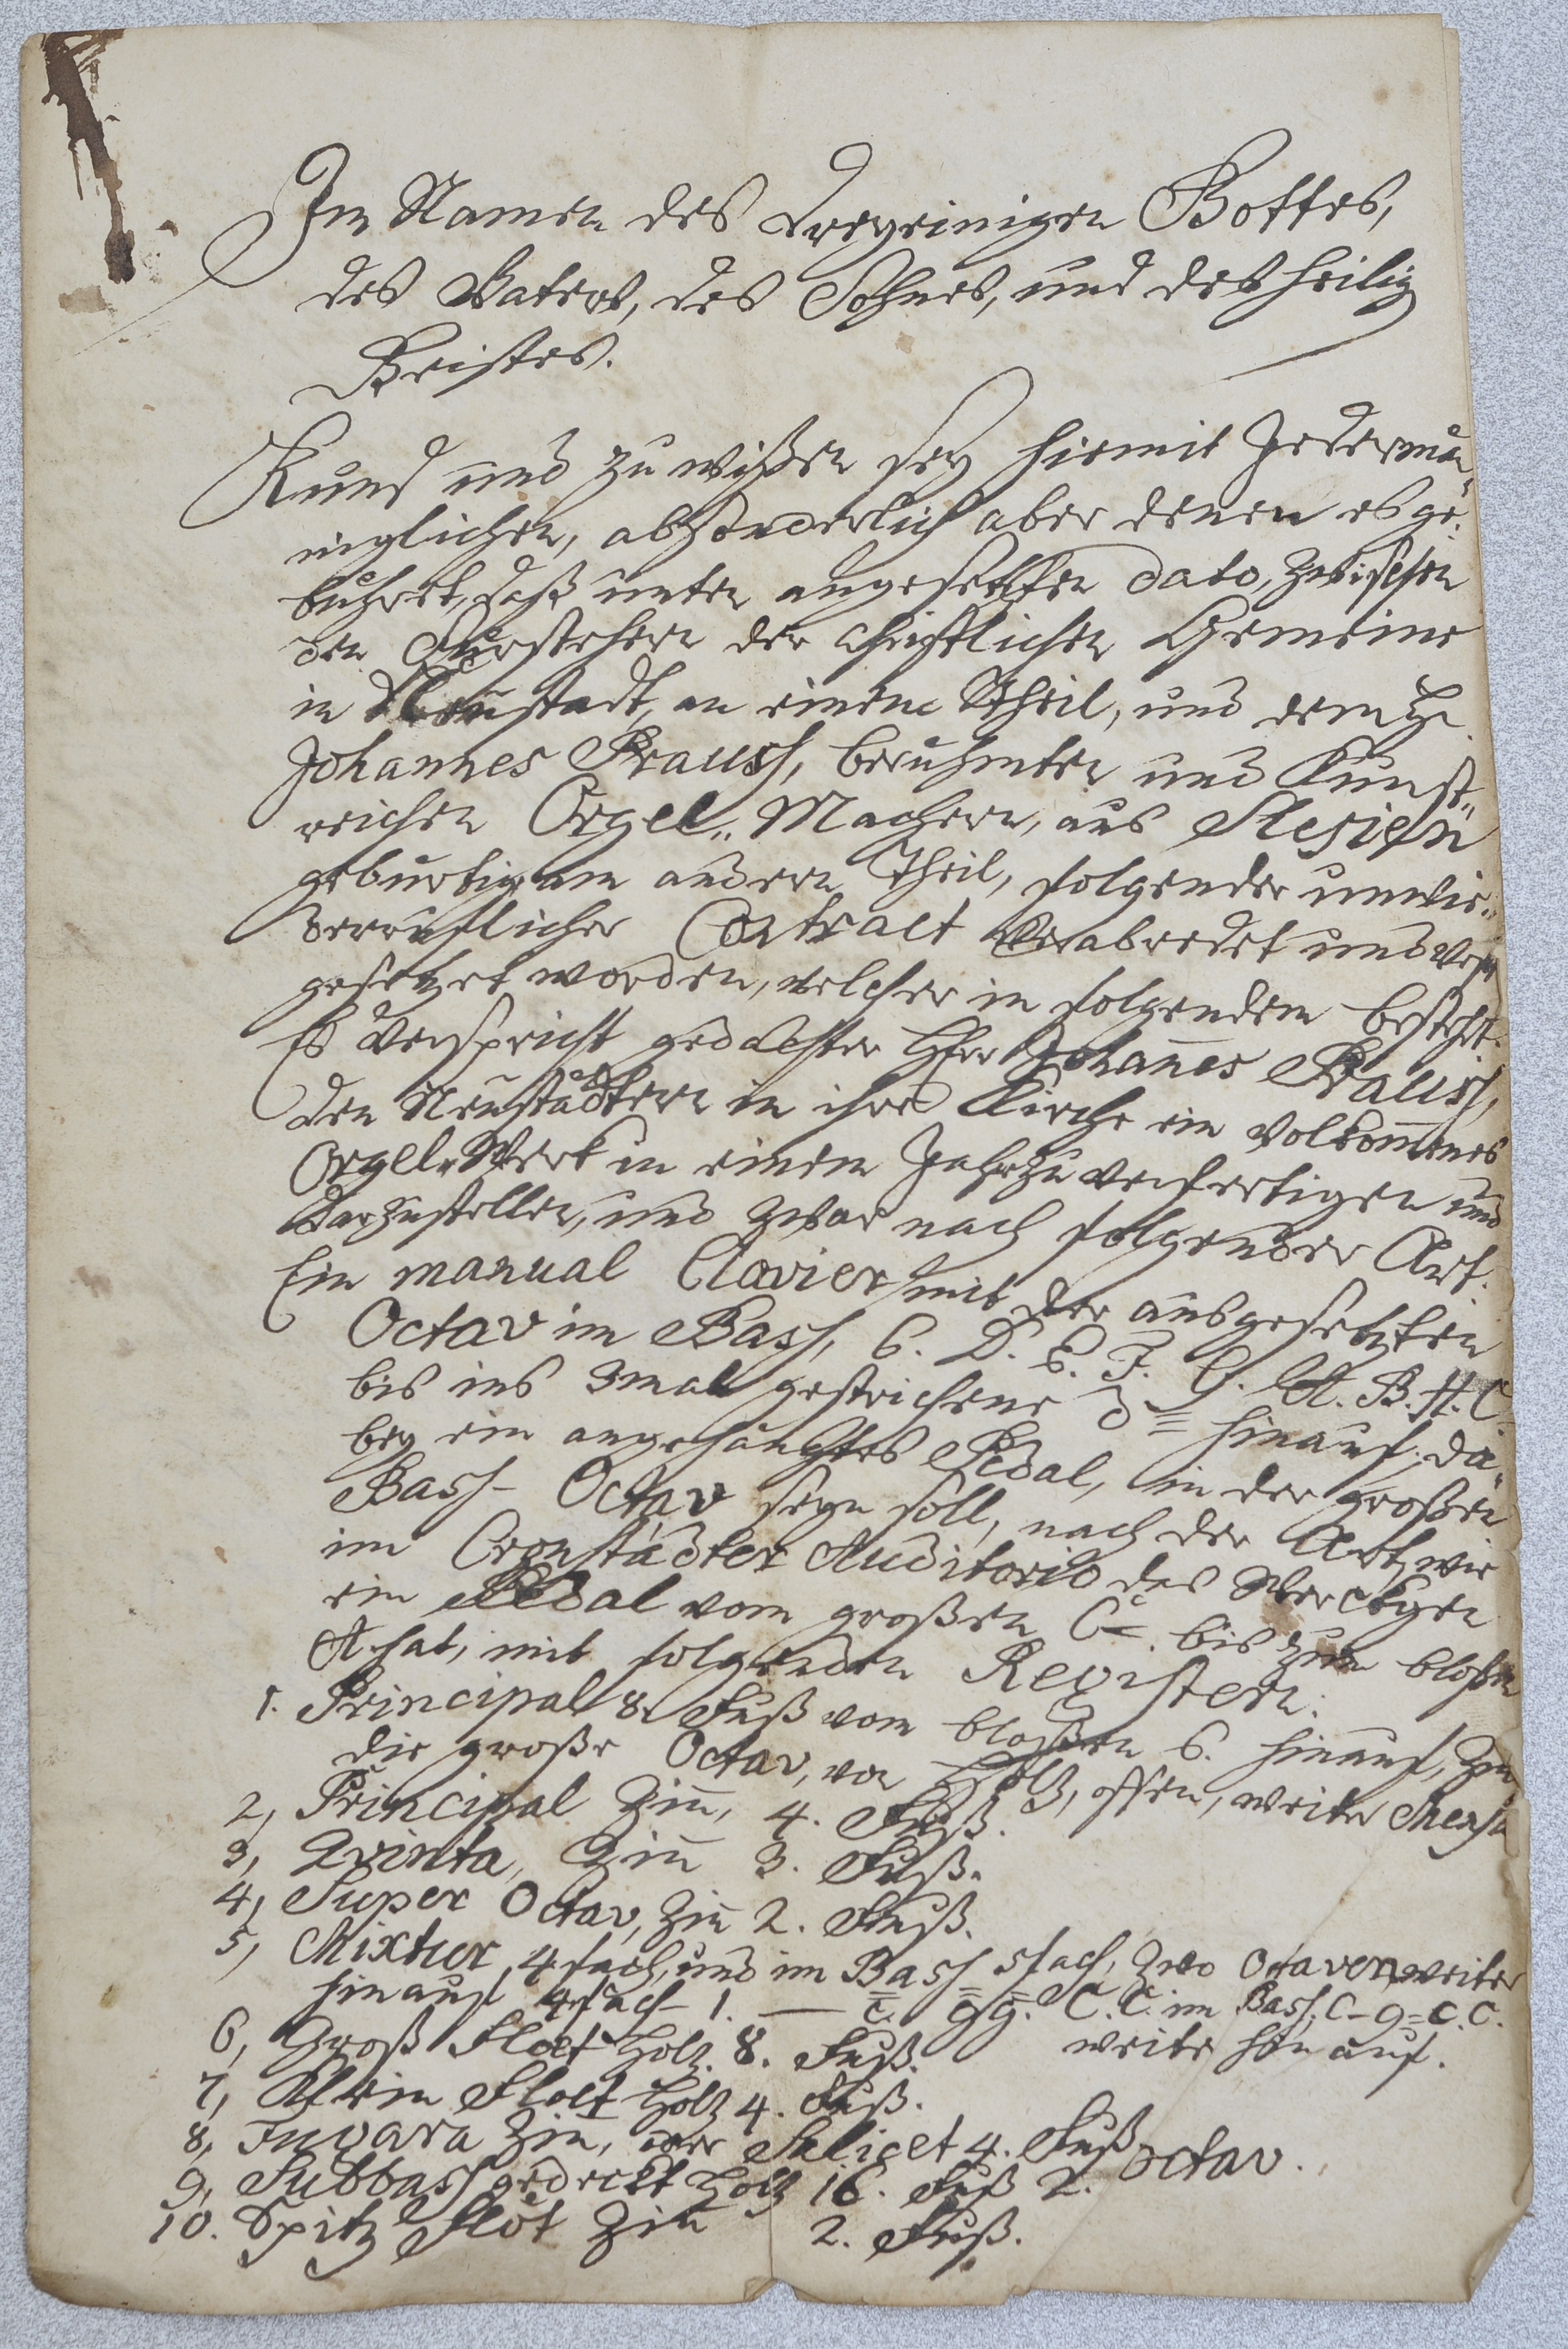 Im Namen des dreyeinigen Gottes,
des Vaters, des Sohnes, und des heilig
Geistes.
Kund und zu wißen sey hiermit Jederman„
niglichen, abzonderlich aber denen es ge„
bühret, daß unten angesetzten dato, zwischen
den Vorstehern der christlichen Gemeine
in Neustadt, an einem Theil, und dem H.
Johannes Prauss, berühmten und Kunst„
reichen Orgel„ Machern, aus Slesien
gebürtig am andern Theil, folgender unwie„
derruflicher Contract verabredet und vest
gesetzet worden, welcher in folgendem besteht.
Es verspricht gedachter Herr Johannes Prauss,
den Neustädtern in ihre Kirche ein volkommenes
Orgel„Werk in einem Jahr zu verfertigen und
darzustellen, und zwar nach folgender Art.
Ein manual Clavier mit der ausgesetzten
Octav im Bass, C. D. E. F. G. A. B. H. C
bis ins 3mal gestrichene d hinauf, da„
bey ein angehängtes Pedal, in der großen
Bass- Octav seyn soll, nach der Art, wie
im Cronstädter Auditorio das Werckgen
ein Pedal vom großen C. bis zum bloßen
A hat, mit folgenden Registern.
1. Principal 8. Fuß vom bloßen C. hinauf, Zin
die große Octav, von Holz, offen, weite Mensu
2, Principal Zin̄, 4. Fuß.
3, Qvinta, Zin̄ 3. Fuß.
4, Super Octav, Zin̄ 2. Fuß.
5, Mixtur 4fach, und im Bass 3fach, zwo Octaven, weiter
hinauf 4fach 1. — c. g g. C. C. im Bass, C - g = c. c.
weite hin auf.
6, Groß Floet Holz. 8. Fuß.
7, Klein Floet Holz 4. Fuß.
8, Fugara Zin̄, oder Salicet 4. Fuß
9, Subbass gedeckt Holz 16. Fuß 2. Octav.
10. Spitz Flöt Zin̄ 2. Fuß.